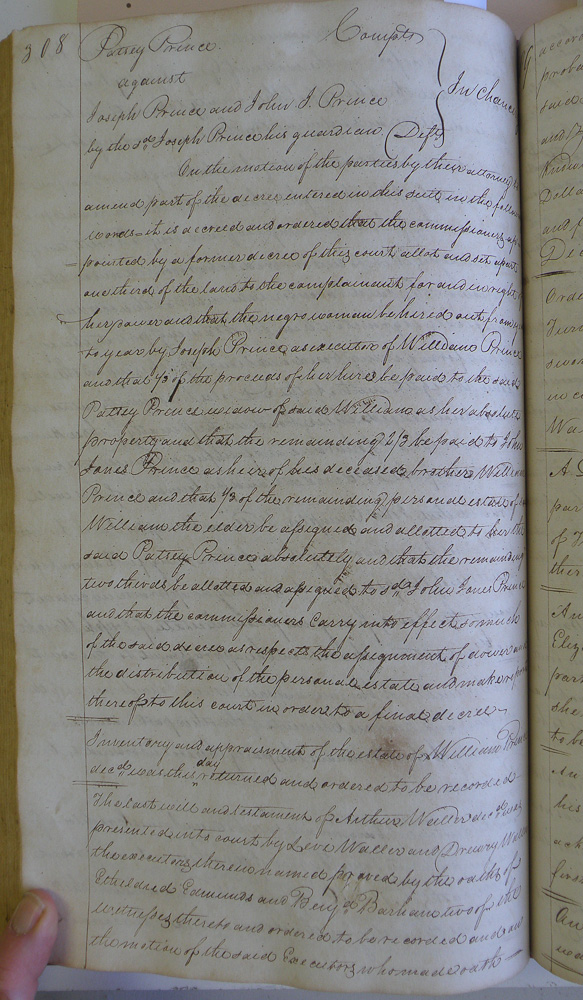 308
Pattsey Prince. Compts
against
Joseph Prince and John J. Prince } In Chance
by the sd. Joseph Prince his guardian Defts
On the motion of the parties by their attorneys to
amend part of the decree entered in this suit in the follow
words = it is decreed and ordered that the commissioners ap
pointed by a former decree of this court allot and set apart
one third of the land to the complainant for and in right of
her dower and that the negro woman be hired out from year
to year by Joseph Prince as executor of William Prince
and that 1/3 of the proceeds of her hire be paid to the said
Pattsey Prince widow of said William as her absolute
property and that the remaining 2/3 be paid to John
Jones Prince as heir of his deceased brother William
Prince and that 1/3 of the remaining personal estate of sd
William the elder be assigned and allotted to her the
said Pattsey Prince absolutely and that the remaining
two thirds be allotted and assigned to sd. John Jones Prince
and that the commissioners carry into effect so much
of the said decree as respects the assignment of dower and
the distribution of the personal estate and make report
thereof to this court in order to a final decree
Inventory and appraisment of the estate of William
decd. was this day returned and ordered to be recorded
The last will and testament of Arthur Waller decd. was
presented into court by Levi Waller and Drewry Waller
the executors therein named proved by the oaths of
Etheldred Edmunds and Benja. Barham two of the
witnesses thereto and ordered to be recorded and on
the motion of the said Executors who made oath